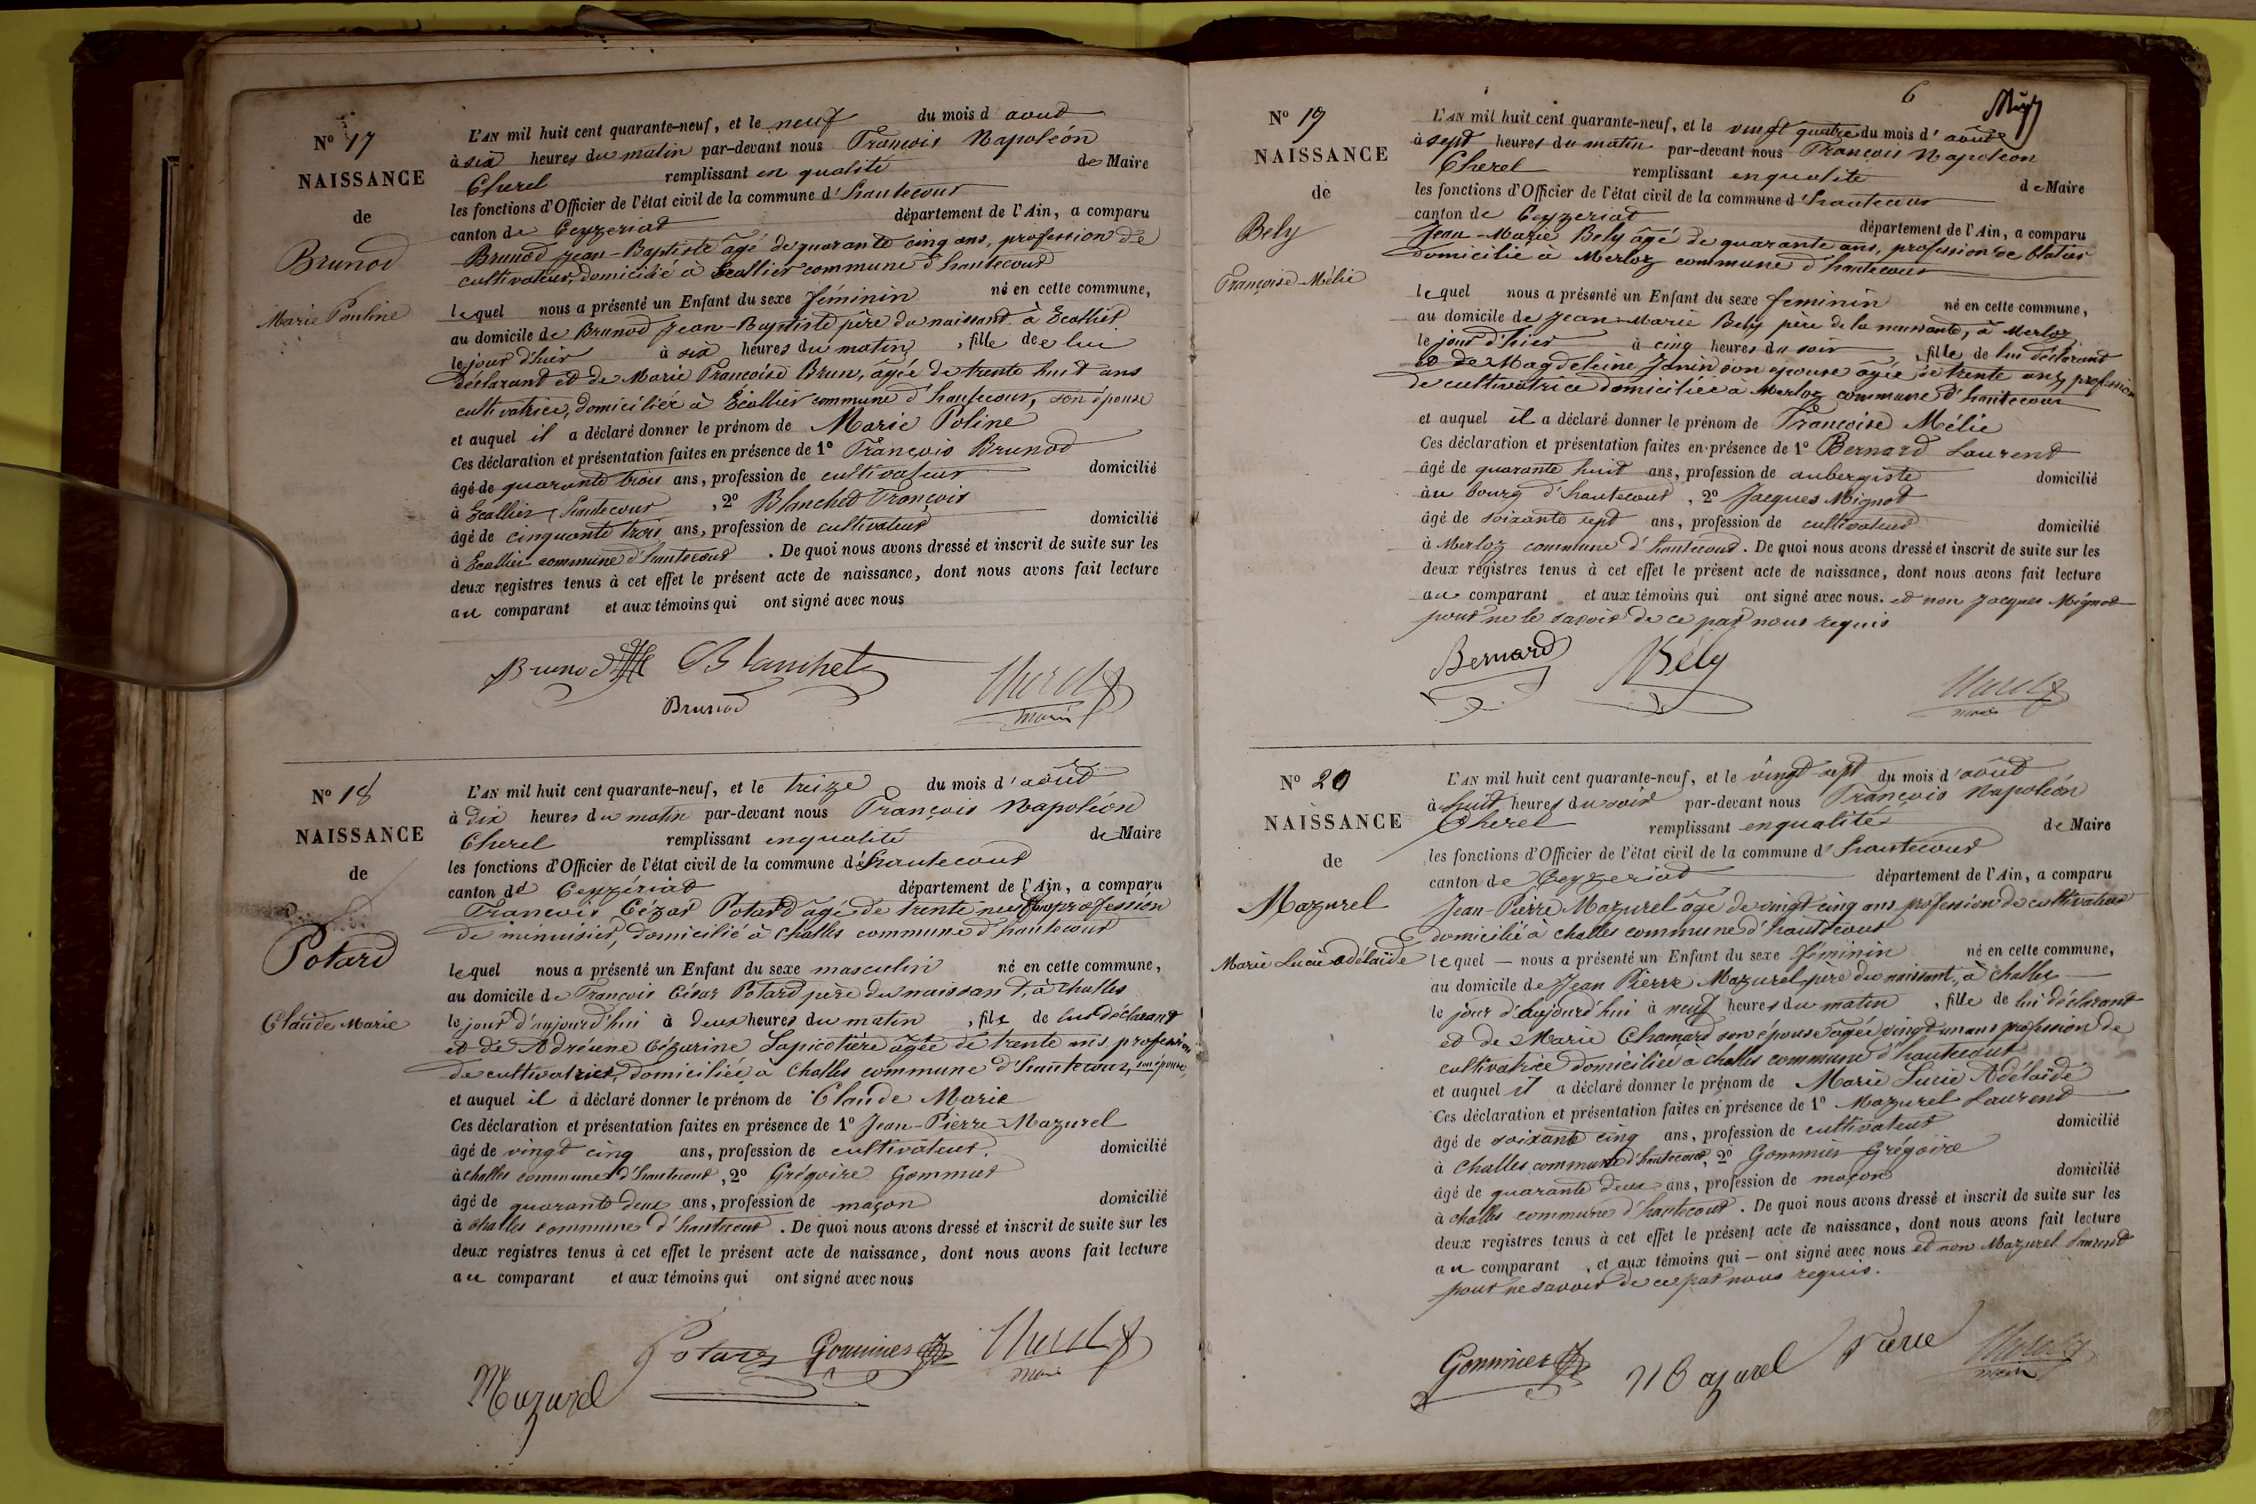 N° 17
NAISSANCE
de
Brunod
Marie Pauline
L'AN mil huit cent quarante-neuf, et le neuf du mois d aout
à six heures du matin par-devant nous François Napoléon
Cherel remplissant en qualité de Maire
les fonctions d'Officier de l'état civil de la commune d'hautecour
canton de Ceyzeriat département de l'Ain, a comparu
Brunod Jean-Baptiste âgé de quarante cinq ans, profession de
cultivateur, domicilié à Ecallier commune d'hautecour
lequel nous a présenté un Enfant du sexe féminin né en cette commune,
au domicile de Brunod Jean-Baptiste père du naissant à Ecallier
le jour d'hier à six heures du matin, fille de lui
déclarant et de Marie Françoise Brun, âgée de trente huit ans
cultivatrice, domiciliée à Ecallier commune d'hautecour, son épouse
et auquel il a déclaré donner le prénom de Marie Poline
Ces déclaration et présentation faites en présence de 1° François Brunod
âgé de quarante trois ans, profession de cultivateur domicilié
à Ecallier, hautecour, 2° Blanchet François
âgé de cinquante trois ans, profession de cultivateur domicilié
à Ecallier commune d'hautecour. De quoi nous avons dressé et inscrit de suite sur les
deux registres tenus à cet effet le présent acte de naissance, dont nous avons fait lecture
au comparant et aux témoins qui ont signé avec nous
Brunod Blanchet
Brunod Cherel
maire
N° 18
NAISSANCE
de
Potard
Claude Marie
L'AN mil huit cent quarante-neuf, et le treize du mois d'août
à dix heures du matin par-devant nous François Napoléon
Cherel remplissant en qualité de Maire
les fonctions d'Officier de l'état civil de la commune d'hautecour
canton de Ceyzériat département de l'Ain, a comparu
François Cézar Potard âgé de trente neuf ans profession
de menuisier, domicilié à Challes commune d'hautecour
lequel nous a présenté un Enfant du sexe masculin né en cette commune,
au domicile de François César Potard père du naissant, à Challes
le jour d'aujourd'hui à deux heures du matin, fils de lui déclarant
et de Adréenne Cézarine Lapicotière âgée de trente ans profession
de cultivatrice, domiciliée à Challes commune d'hautecour, son épouse
et auquel il a déclaré donner le prénom de Claude Marie
Ces déclaration et présentation faites en présence de 1° Jean-Pierre Mazurel
âgé de vingt cinq ans, profession de cultivateur. domicilié
à challes commune d'hautecour, 2° Grégoire Gommer
âgé de quarante deux ans, profession de maçon domicilié
à challes commune d'hautecour. De quoi nous avons dressé et inscrit de suite sur les
deux registres tenus à cet effet le présent acte de naissance, dont nous avons fait lecture
au comparant et aux témoins qui ont signé avec nous
Potard Gommier Cherel
maire
Mazurel
6
N° 19
NAISSANCE
de
Bely
Françoise Mélie
L'AN mil huit cent quarante-neuf, et le vingt quatre du mois d'août
à sept heures du matin par-devant nous François Napoléon
Cherel remplissant en qualité de Maire
les fonctions d'Officier de l'état civil de la commune d'hautecour
canton de Ceyzeriat département de l'Ain, a comparu
Jean-Marie Bely âgé de quarante ans, profession de blatier
domicilié à Merloz commune d'hautecour
lequel nous a présenté un Enfant du sexe feminin né en cette commune,
au domicile de Jean-Marie Bely père de la naissante, à Merloz
le jour d'hier à cinq heures du soir, fille de lui déclarant
et de Magdeleine Janin son épouse âgée de trente ans, profession
de cultivatrice domiciliée à Merloz commune d'hautecour
et auquel il a déclaré donner le prénom de Françoise Mélie
Ces déclaration et présentation faites en présence de 1° Bernard Laurent
âgé de quarante huit ans, profession de aubergiste domicilié
au bourg d'hautecour, 2° Jacques Mignot
âgé de soixante sept ans, profession de cultivateur domicilié
à Merloz commune d'hautecour. De quoi nous avons dressé et inscrit de suite sur les
deux registres tenus à cet effet le présent acte de naissance, dont nous avons fait lecture
au comparant et aux témoins qui ont signé avec nous. et non Jacques Mignot
pour ne le savoir de ce par nous requis
Bernard Bély Cherel
maire
N° 20
NAISSANCE
de
Mazurel
Marie Lucie Adélaïde
L'AN mil huit cent quarante-neuf, et le vingt sept du mois d'août
à huit heures du soir par-devant nous François Napoléon
Cherel remplissant en qualité de Maire
les fonctions d'Officier de l'état civil de la commune d'hautecour
canton de Ceyzeriat département de l'Ain, a comparu
Jean-Pierre Mazurel âgé de vingt cinq ans profession de cultivateur
domicilié à challes commune d'hautecour
lequel — nous a présenté un Enfant du sexe féminin né en cette commune,
au domicile de Jean Pierre Mazurel père du naissant, à challes
le jour d'aujourd'hui à neuf heures du matin, fille de lui déclarant
et de Marie Chamard son épouse âgée vingt un ans profession de
cultivatrice domiciliée à challes commune d'hautecour
et auquel il a déclaré donner le prénom de Marie Lucie Adélaïde
Ces déclaration et présentation faites en présence de 1° Mazurel Laurent
âgé de soixante cinq ans, profession de cultivateur domicilié
à Challes commune d'hautecour, 2° Gommier Grégoire
âgé de quarante deux ans, profession de maçon domicilié
à challes commune d'hautecour. De quoi nous avons dressé et inscrit de suite sur les
deux registres tenus à cet effet le présent acte de naissance, dont nous avons fait lecture
au comparant, et aux témoins qui — ont signé avec nous et non Mazurel Laurent
pour ne savoir de ce par nous requis.
Gommier Mazurel Pierre Cherel
maire